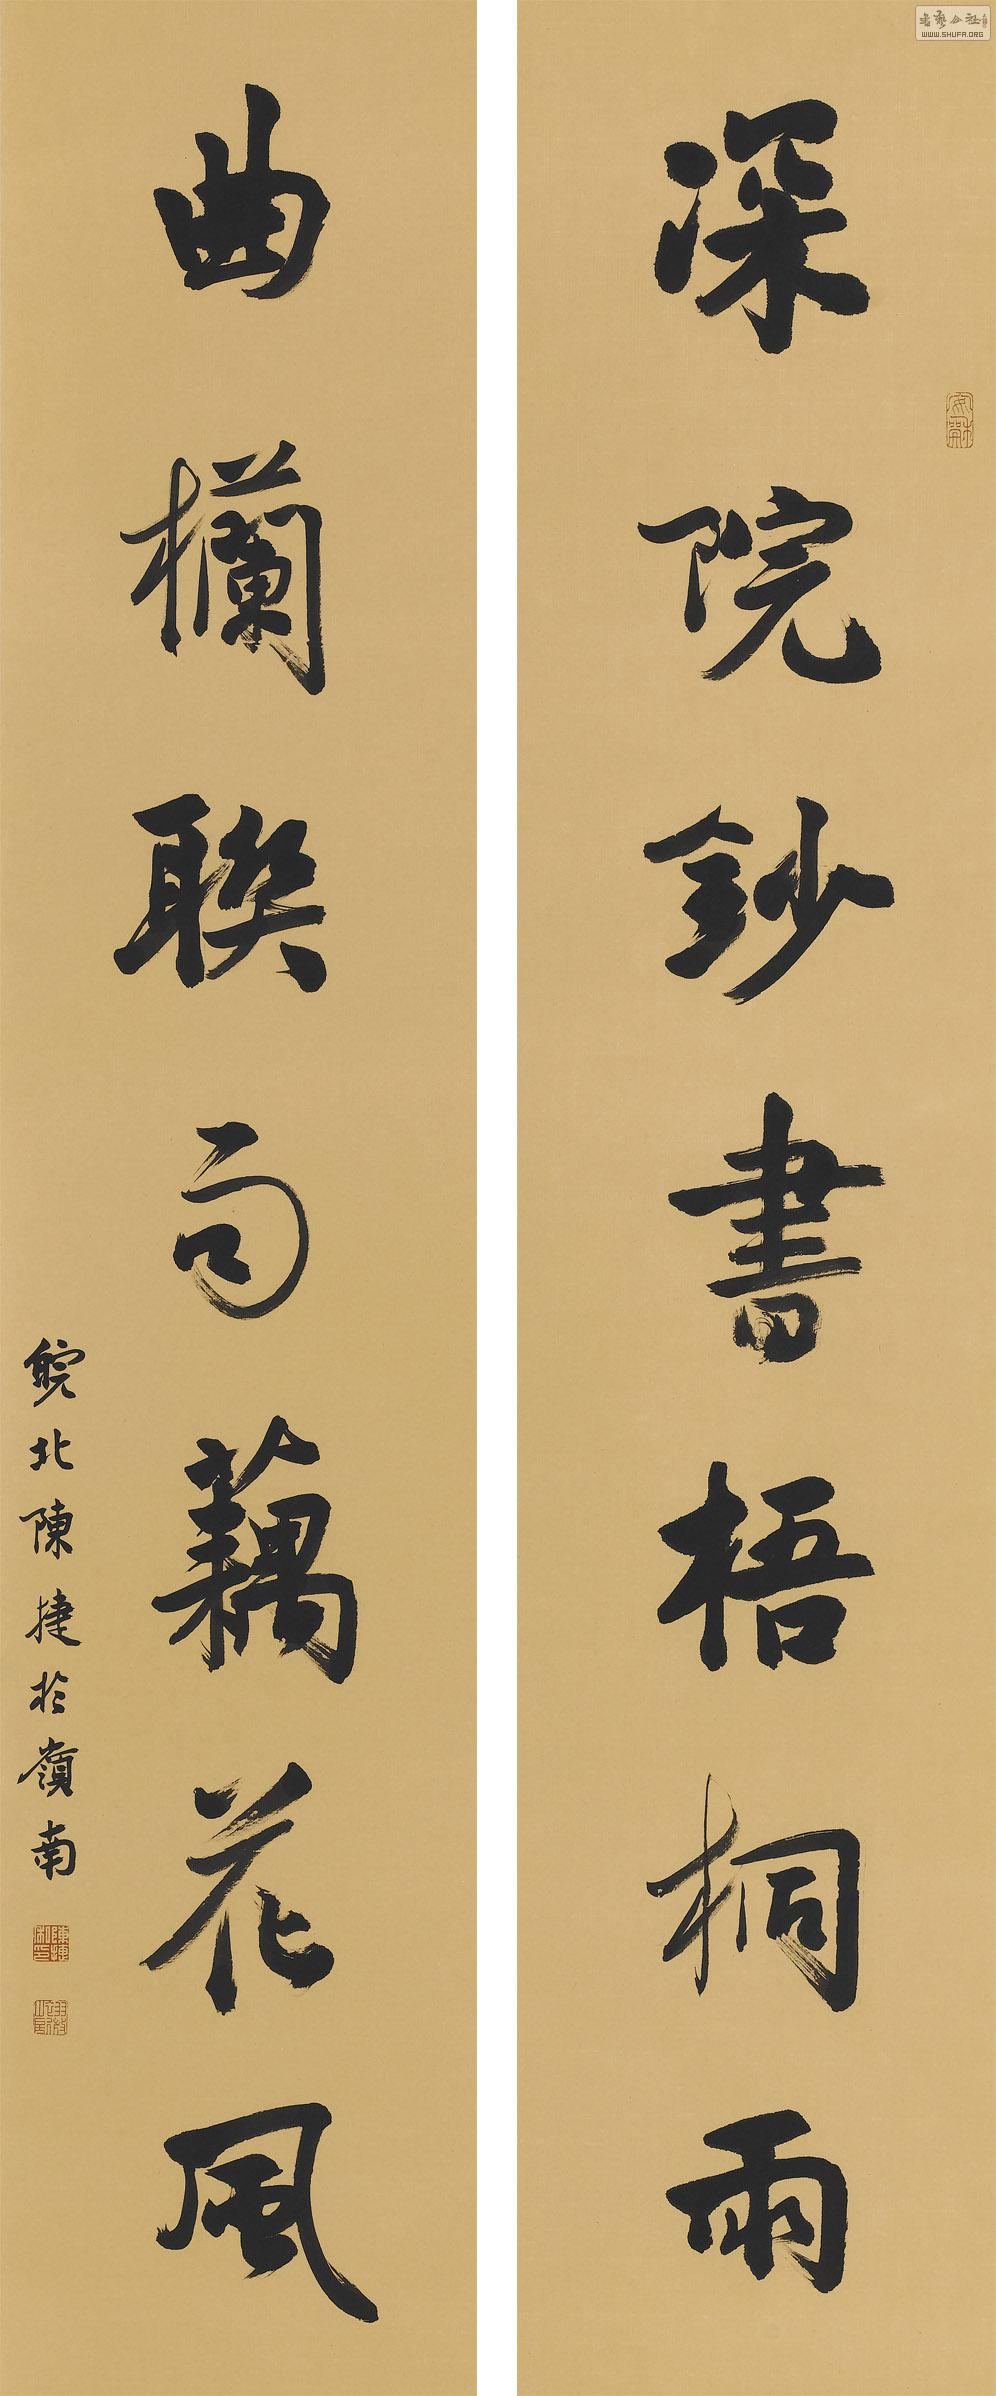 深院鈔書梧桐雨
曲欄聯句藕花風
皖北陳捷於嶺南
WWW.SHUFA.ORG